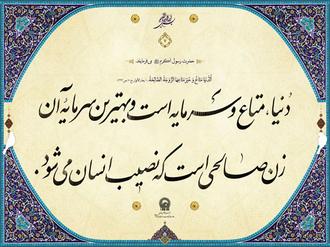 حضرت رسول اکرم ﷺ می‌فرمایند:
الدُّنیا مَتاعٌ وَ خَیرُ مَتاعِها الزَّوجَةُ الصّالِحَةُ
دنیا، متاع و سرمایه است و بهترین سرمایه آن
زن صالحی است که نصیب انسان می‌شود.